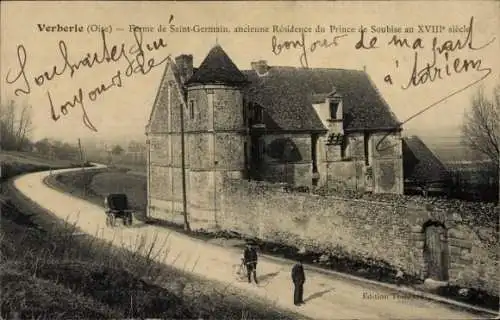 Verberie (Oise) - Ferme de St-Germain, ancienne Résidence du Prince de Soubise au XVIIIe siècle
Souhaite lui
bonjour de ma part
à Adrien
toujours de
Edition